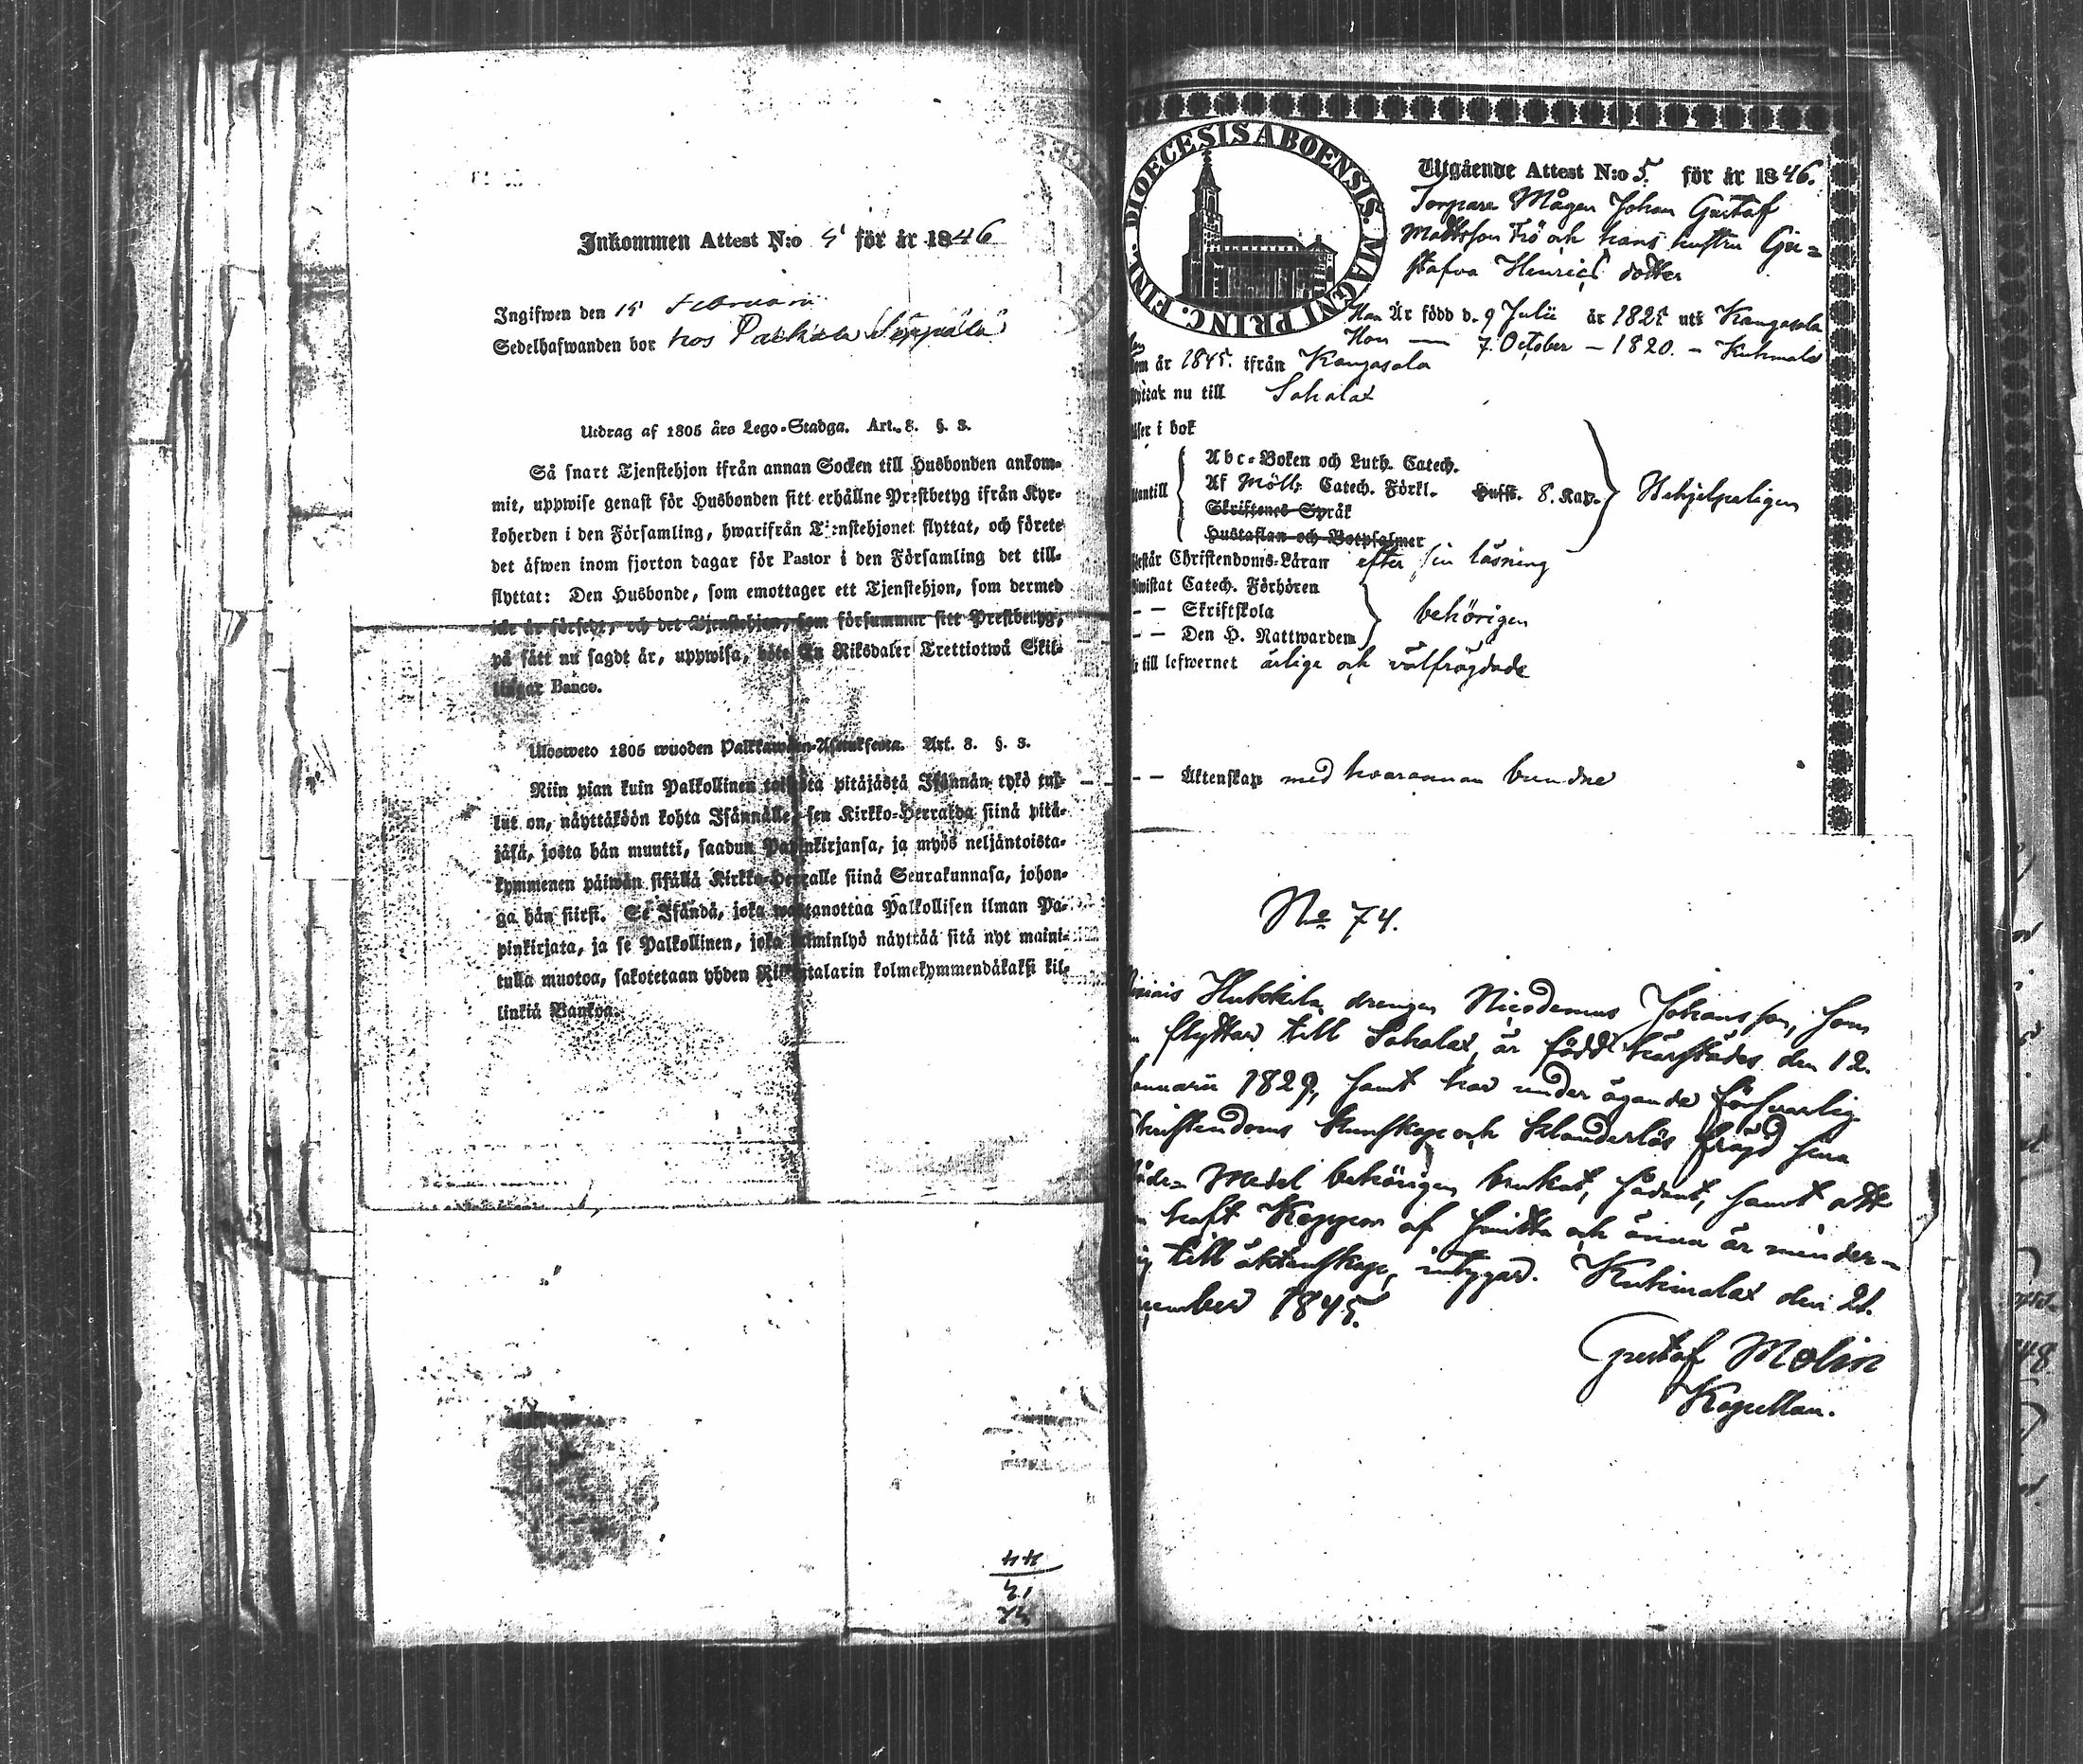 Inkommen Attest N:o 4 för år 1846
Ingifwen den 15 Februari
Sedelhafwanden bor hos Seppälä
Utdrag af 1805 års Lego-Stadga. Art. 8. §. 3.
Så snart Tjenstehjon ifrån annan Socken till Husbonden ankom-
mit, uppwise genast för Husbonden sitt erhållne Prestbetyg ifrån Kyr-
koherden i den Församling, hwarifrån Tjenstehjonet flyttat, och förete
det äfwen inom fjorton dagar för Pastor i den Församling det till-
flyttat: Den Husbonde, som emottager ett Tjenstehjon, som dermed
icke är försedt, och det Tjenstehjon, som försummar sitt Prestbetyg,
på sätt nu sagdt är, uppwisa, böte En Riksdaler Trettiotwå Skil-
lingar Banco.
Ulosweto 1805 wuoden Palkkawäen-Asetuksesta. Art. 8. §. 3.
Niin pian kuin Palkollinen toisesta pitäjästä Isännän tykö tul-
lut on, näyttäköön kohta Isännälle, sen Kirkko-Herralda siinä pitä-
jäsä, josta hän muutti, saadun Papinkirjansa, ja myös neljäntoista-
kymmenen päiwän sisällä Kirkko-Herralle siinä Seurakunnasa, johon-
ga hän siirsi. Se Isändä, joka wastanottaa Palkollisen ilman Pa-
pinkirjata, ja se Palkollinen, joka laiminlyö näyttää sitä nyt maini-
tulla muotoa, sakotetaan yhden Riksitalarin kolmekymmendäkaksi kil-
linkiä Bankoa.
DIOECESIS ABOENSIS. MAGNI PRINC. FINL.
Utgående Attest N:o 5. för år 1846.
Torpare Mågen Johan Gustaf
Mattsson Frö och hans hustru Gu=
stafva Henrics dotter
Han Är född d. 9 Julii år 1825 uti Kangasala
Hon — 7. October — 1820. — Kuhmalax
om år 1845. ifrån Kangasala
nu till Sahalax
i bok
Abc-Boken och Luth. Catech.
Af Möll. Catech. Förkl. Huff. 8. Kap. Hehjelpeligen
Skriftenes Språk
Hustaflan och Botpsalmer
Christendoms-Läran efter sin läsning
Catech. Förhören
– – Skriftskola behörigen
– – Den H. Nattwarden
till lefwernet ärlige och välfrägdade
– – Äktenskap med hvarannan bundne
No 74.
drengen Nicodemus Johansson, som
flyttar till Sahalax, är född härstädes den 12.
Januarii 1829, samt har under ägande försvarlig
Christendoms kunskap och klanderlös frägd sina
Nåde-Medel behörigen brukat, sådant, samt att
haft Koppor af smitta och ännu är minder-
ig till äktenskap, intygar. Kuhmalax den 21.
1845.
Gustaf Molin
Kapellan.